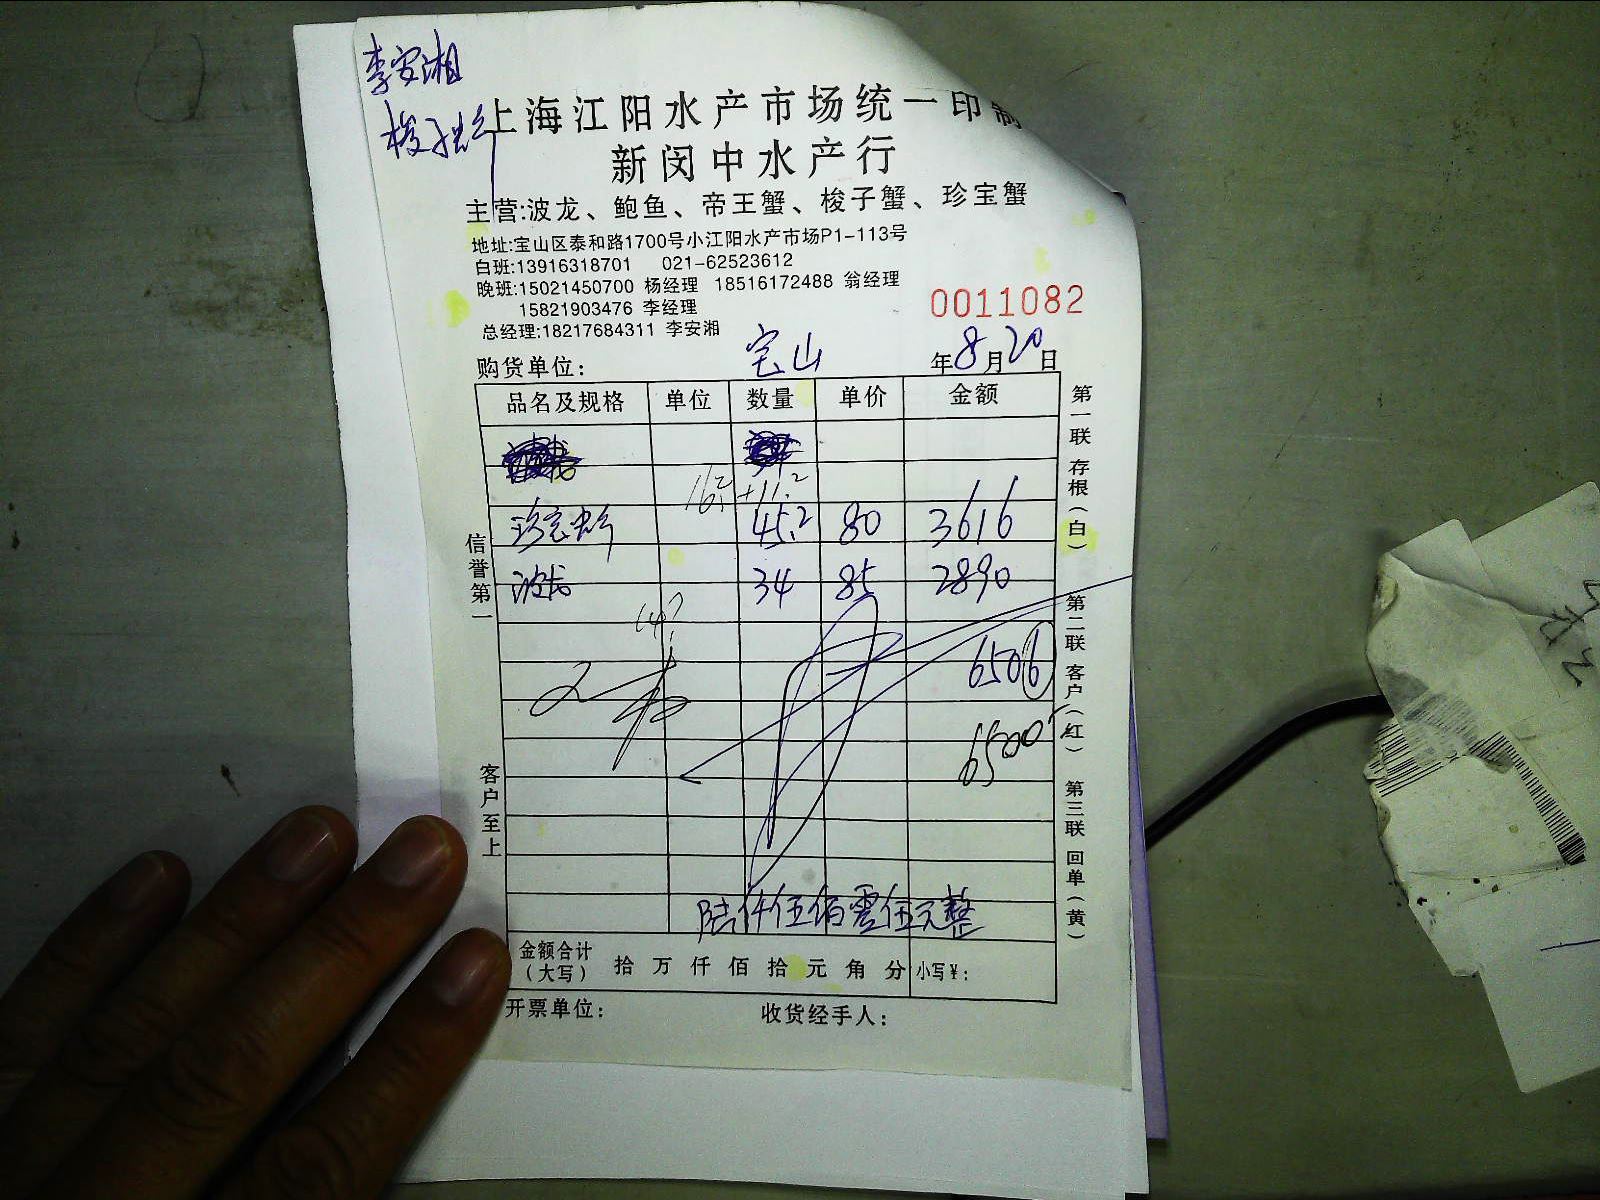 李安湘
梭子蟹
上海江阳水产市场统一印制
新闵中水产行
主营:波龙、鲍鱼、帝王蟹、梭子蟹、珍宝蟹
地址:宝山区泰和路1700号小江阳水产市场P1-113号
白班:13916318701 021-62523612
晚班:15021450700 杨经理 18516172488 翁经理
15821903476 李经理
总经理:18217684311 李安湘
0011082
购货单位: 宝山 年8月20日
品名及规格 单位 数量 单价 金额
+11.2
珍宝蟹 45.2 80 3616
波龙 34 85 2890
6506
6500
陆仟伍佰零伍元整
金额合计(大写) 拾 万 仟 佰 拾 元 角 分 小写¥:
开票单位: 收货经手人:
信誉第一
客户至上
第一联 存根(白)
第二联 客户(红)
第三联 回单(黄)